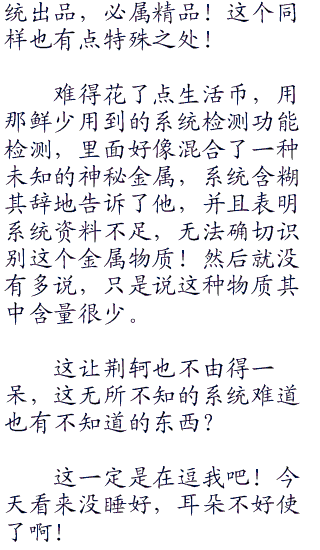 统出品，必属精品！这个同
样也有点特殊之处！
难得花了点生活币，用
那鲜少用到的系统检测功能
检测，里面好像混合了一种
未知的神秘金属，系统含糊
其辞地告诉了他，并且表明
系统资料不足，无法确切识
别这个金属物质！然后就没
有多说，只是说这种物质其
中含量很少。
这让荆轲也不由得一
呆，这无所不知的系统难道
也有不知道的东西？
这一定是在逗我吧！今
天看来没睡好，耳朵不好使
了啊！